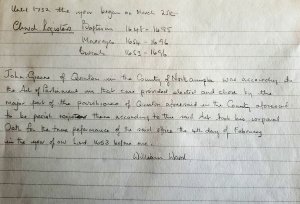 Until 1752 the year began on March 25th
Church Registers Baptisms 1648 - 1695
Marriages 1654 - 1696
Burials 1653 - 1696
John Greene of Quinton in the County of Northampton was according to
the Act of Parliament in that case provided elected and chose by the
major part of the parishioners of Quinton aforesaid in the County aforesaid
to be parish register there according to the said Act hath his corporal
Oath for the true performance of the said office the 4th day of February
in the year of our Lord 1653 before me.
William Ward